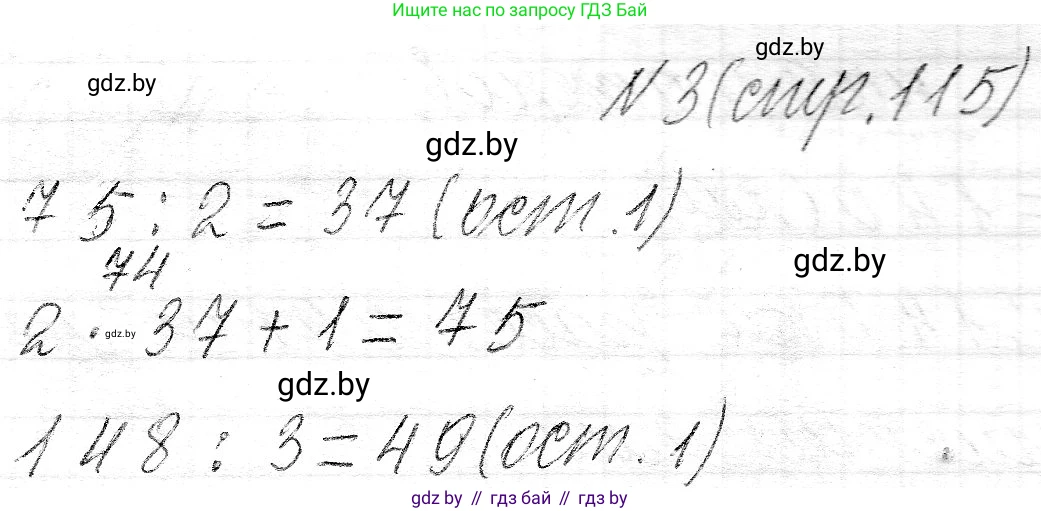 Ищите нас по запросу ГДЗ Бай
gdz.by
gdz.by
N 3 (стр. 115)
gdz.by
75 : 2 = 37 (ост. 1)
gdz.by
74
2 · 37 + 1 = 75
gdz.by
gdz.by
148 : 3 = 49 (ост. 1)
gdz.by // гдз бай // гдз by